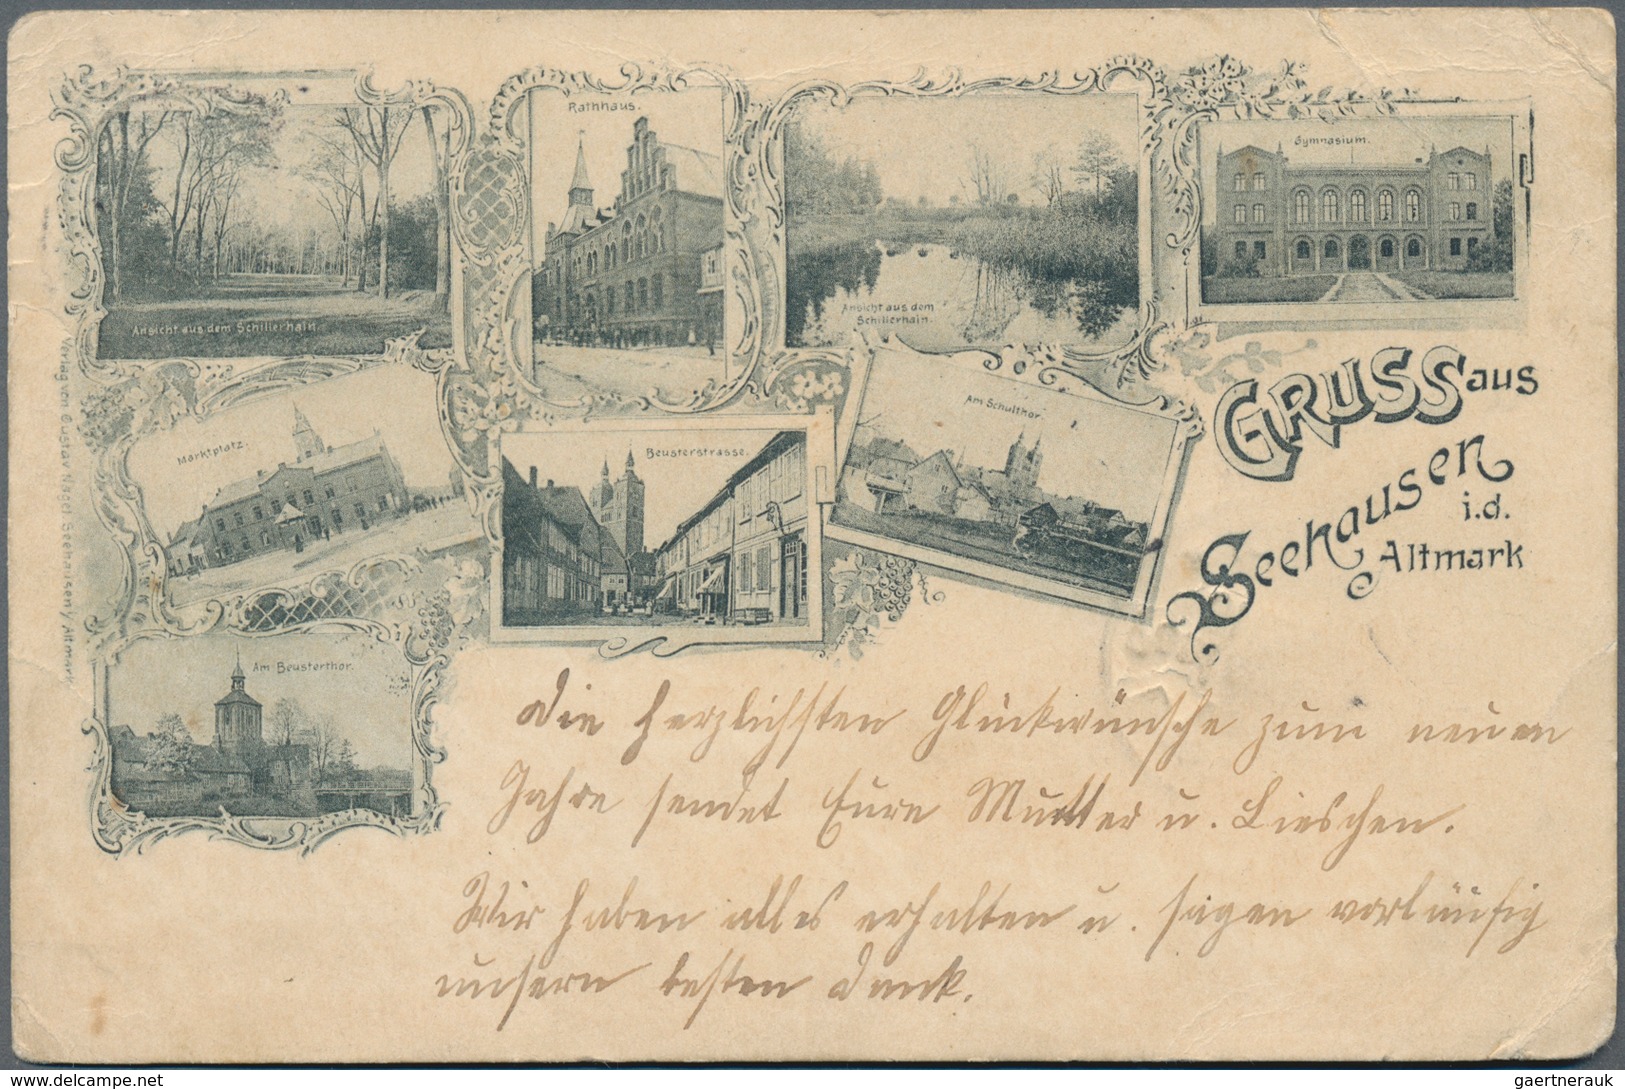 Rathhaus.
Gymnasium.
Ansicht aus dem Schillerhain.
Ansicht aus dem
Schillerhain.
GRUSS aus
Seehausen
i.d.
Altmark
Marktplatz.
Beusterstrasse.
Am Schulthor.
Am Beusterthor.
Verlag von Gustav Nagel Seehausen i/ Altmark
Die herzlichsten Glückwünsche zum neuen
Jahre sendet Eure Mutter u. Lieschen.
Wir haben alles erhalten u. sagen vorläufig
unsern besten Dank.
www.delcampe.net
gaertnerauk